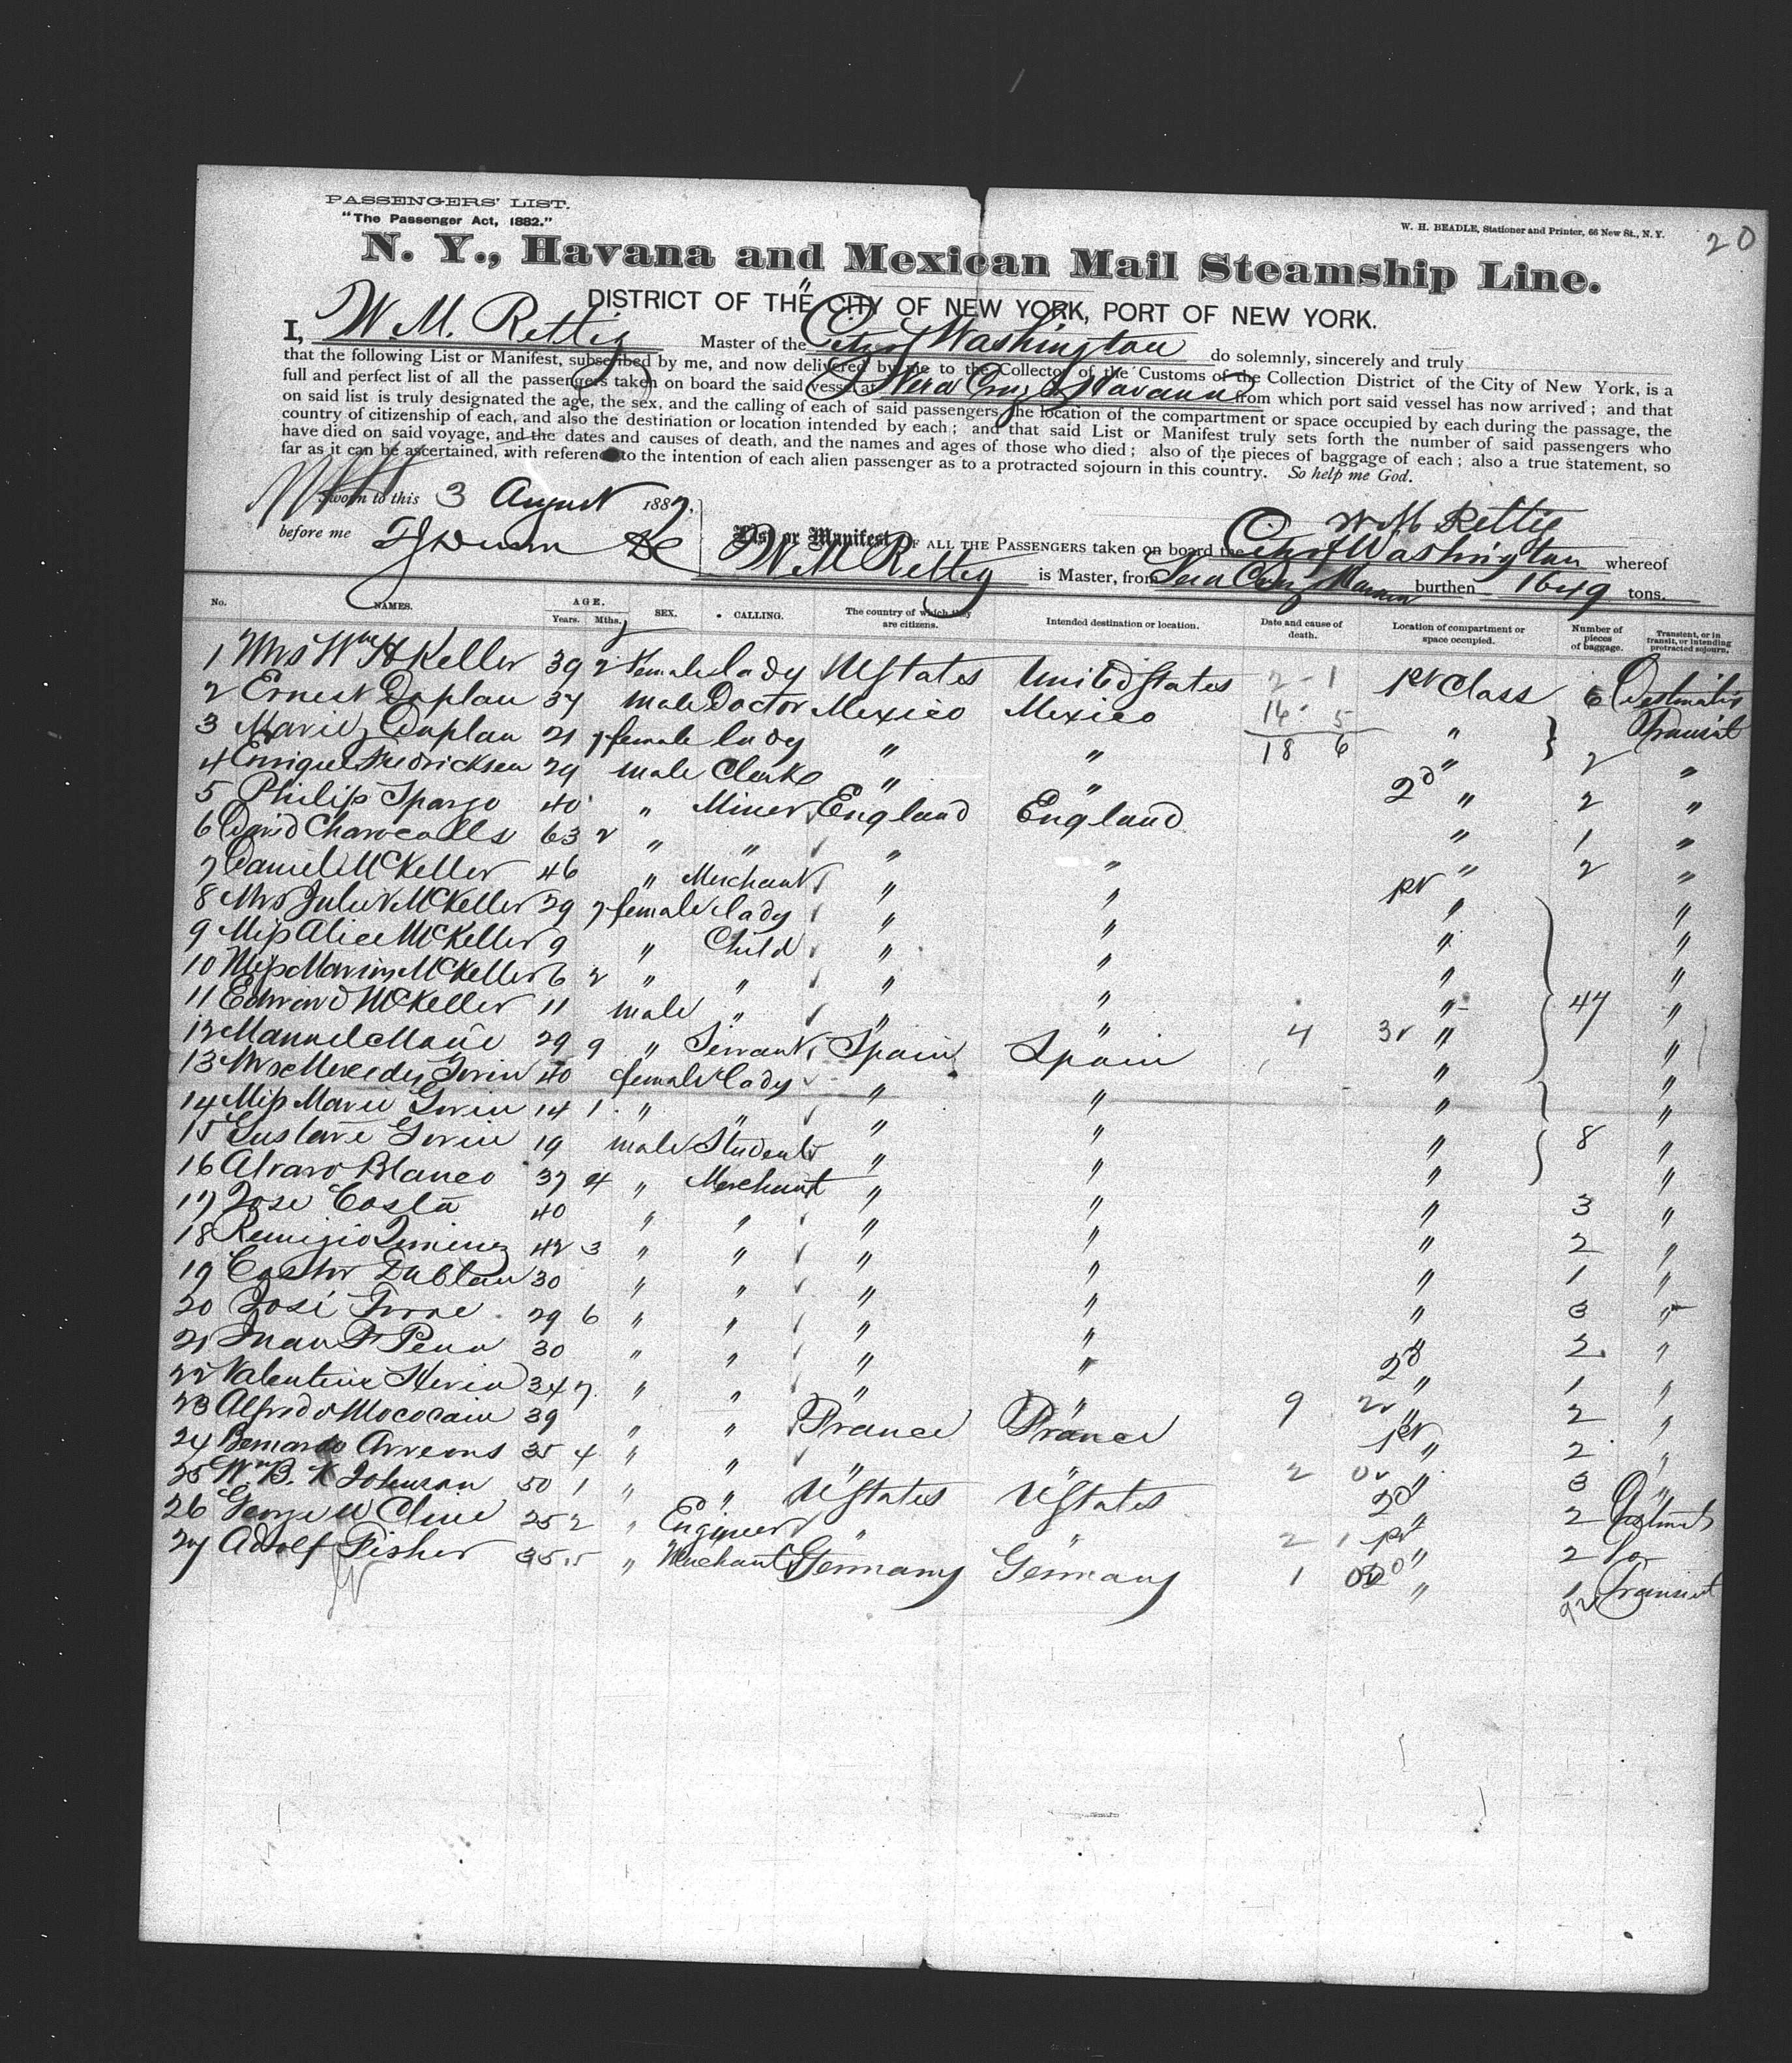 PASSENGERS' LIST.
"The Passenger Act, 1882."
W. H. BEADLE, Stationer and Printer, 66 New St., N. Y.
20
N. Y., Havana and Mexican Mail Steamship Line.
DISTRICT OF THE CITY OF NEW YORK, PORT OF NEW YORK.
I, W. M. Rettig Master of the City of Washington do solemnly, sincerely and truly
that the following List or Manifest, subscribed by me, and now delivered by me to the Collector of the Customs of the Collection District of the City of New York, is a
full and perfect list of all the passengers taken on board the said vessel at Vera Cruz & Havana from which port said vessel has now arrived; and that
on said list is truly designated the age, the sex, and the calling of each of said passengers, the location of the compartment or space occupied by each during the passage, the
country of citizenship of each, and also the destination or location intended by each; and that said List or Manifest truly sets forth the number of said passengers who
have died on said voyage, and the dates and causes of death, and the names and ages of those who died; also of the pieces of baggage of each; also a true statement, so
far as it can be ascertained, with reference to the intention of each alien passenger as to a protracted sojourn in this country. So help me God.
Sworn to this 3 August 1887.
W M Rettig
before me
List or Manifest OF ALL THE PASSENGERS taken on board the City of Washington whereof
W M Rettig is Master, from Vera Cruz Havana burthen 1649 tons.
No. NAMES. AGE. Years. Mths. SEX. CALLING. The country of which they are citizens. Intended destination or location. Date and cause of death. Location of compartment or space occupied. Number of pieces of baggage. Transient, or in transit, or intending protracted sojourn.
1 Mrs Wm H Keller 39 2 Female lady UStates United States 2 - 1 1st Class 6
2 Ernest 37 male Doctor Mexico Mexico 16 5 " Transit
3 Marie 21 7 female lady " " 18 6 " 2 "
4 Enrique Fredricksen 29 male Clerk " " 2d " 2 "
5 Philip Spargo 40 " Miner England England " 1 "
6 David 63 2 " " " " " 2 "
7 Daniel McKeller 46 " Merchant " " 1st " "
8 Mrs Juliet McKeller 29 7 female lady " " " "
9 Miss Alice McKeller 9 " Child " " " "
10 Miss McKeller 6 2 " " " " " "
11 Edward McKeller 11 male " " " " 47 "
12 Manuel 29 9 " Servant Spain Spain 4 3 " "
13 Mrs Mercedes 40 female lady " " " "
14 Miss Marie 14 1 " " " " " "
15 Gustave 19 male Student " " " 8 "
16 Alvaro Blanco 37 4 " Merchant " " " 3 "
17 Jose Costa 40 " " " " " 2 "
18 Remigio 42 3 " " " " " 1 "
19 Castor Dublan 30 " " " " " 3 "
20 José 29 6 " " " " " 2 "
21 Juan F Pena 30 " " " " 2d " 1 "
22 Valentine 34 7 " " " " 9 " 2 "
23 Alfred 39 " " France France 1st " 2 "
24 Bernardo 35 4 " " " " 2 " 3 "
25 Wm B. K Johnson 50 1 " " UStates UStates 2d " 2
26 George W Cline 25 2 " Engineer " " 2 1 1st " 2 Do
27 Adolf Fisher 35 5 " Merchant Germany Germany 1 " 1 Transient
92